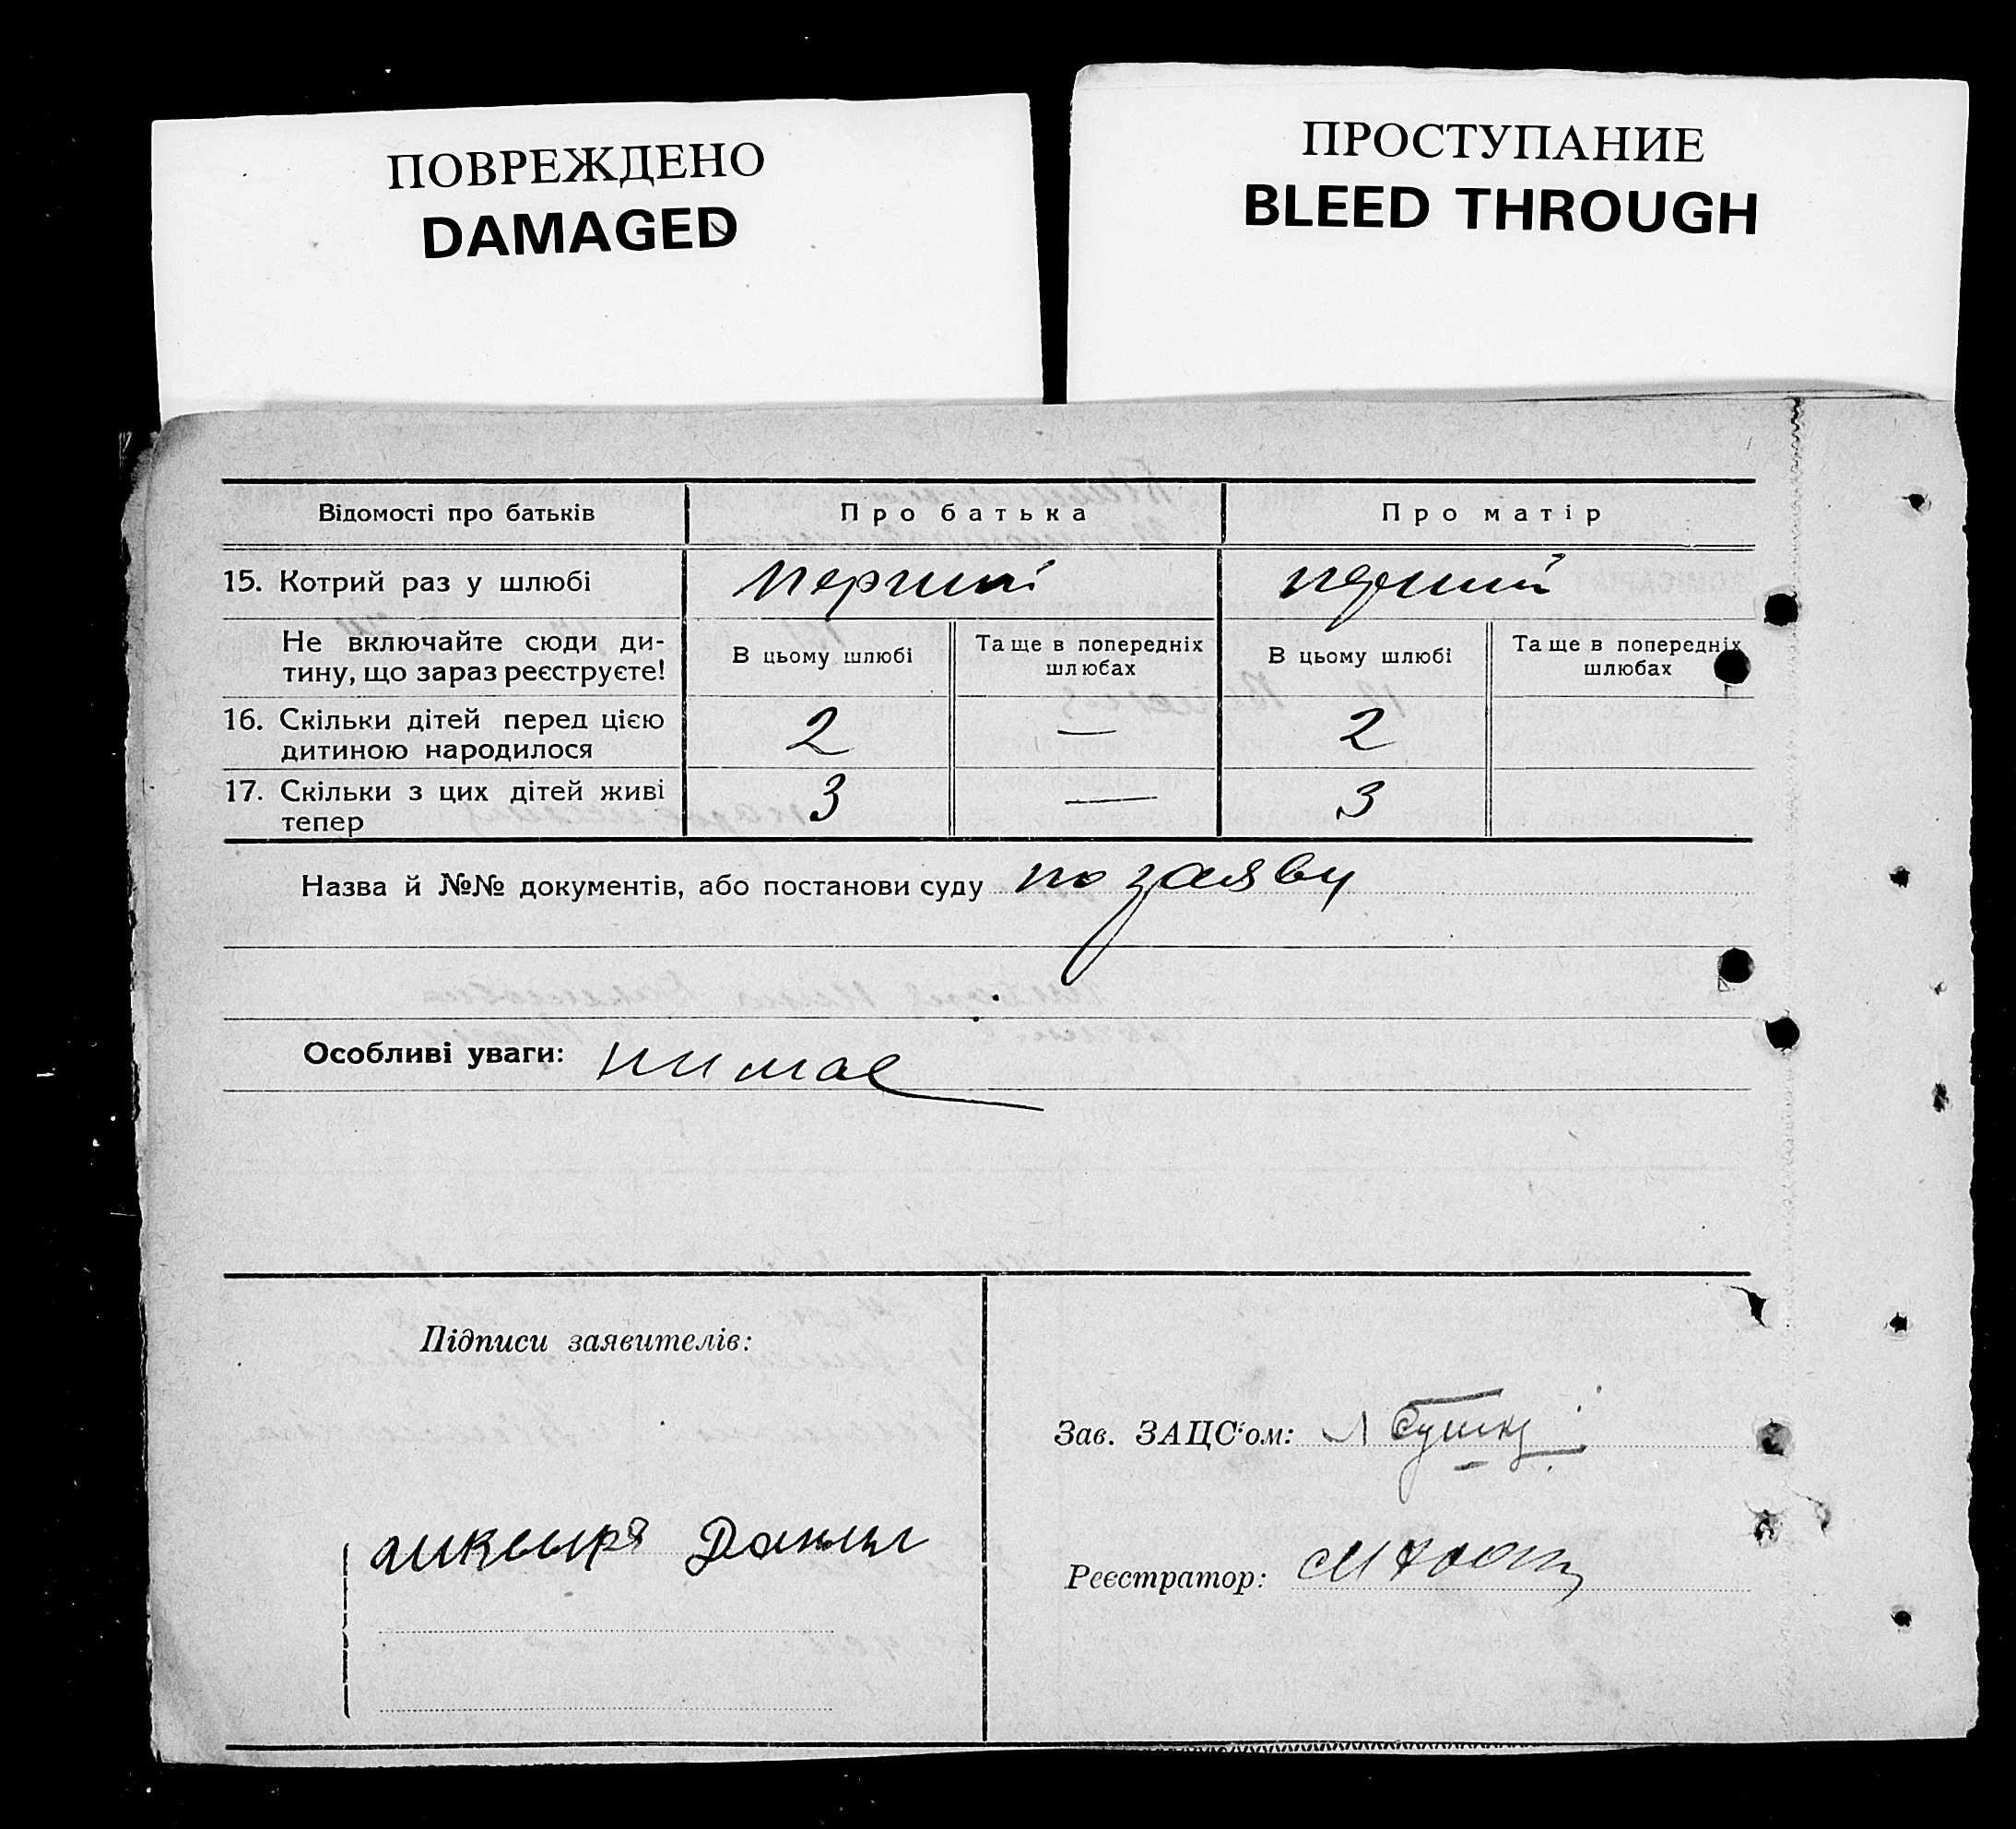 ПОВРЕЖДЕНО
DAMAGED
ПРОСТУПАНИЕ
BLEED THROUGH
Відомості про батьків
Про батька
Про матір
15. Котрий раз у шлюбі
перший
перший
Не включайте сюди ди-
тину, що зараз реєструєте!
В цьому шлюбі
Та ще в попередніх
шлюбах
В цьому шлюбі
Та ще в попередніх
шлюбах
16. Скільки дітей перед цією
дитиною народилося
2
—
2
17. Скільки з цих дітей живі
тепер
3
—
3
Назва й №№ документів, або постанови суду по заяви
Особливі уваги: нимае
Підписи заявителів:
Зав. ЗАЦС'ом:
Данил
Реєстратор: